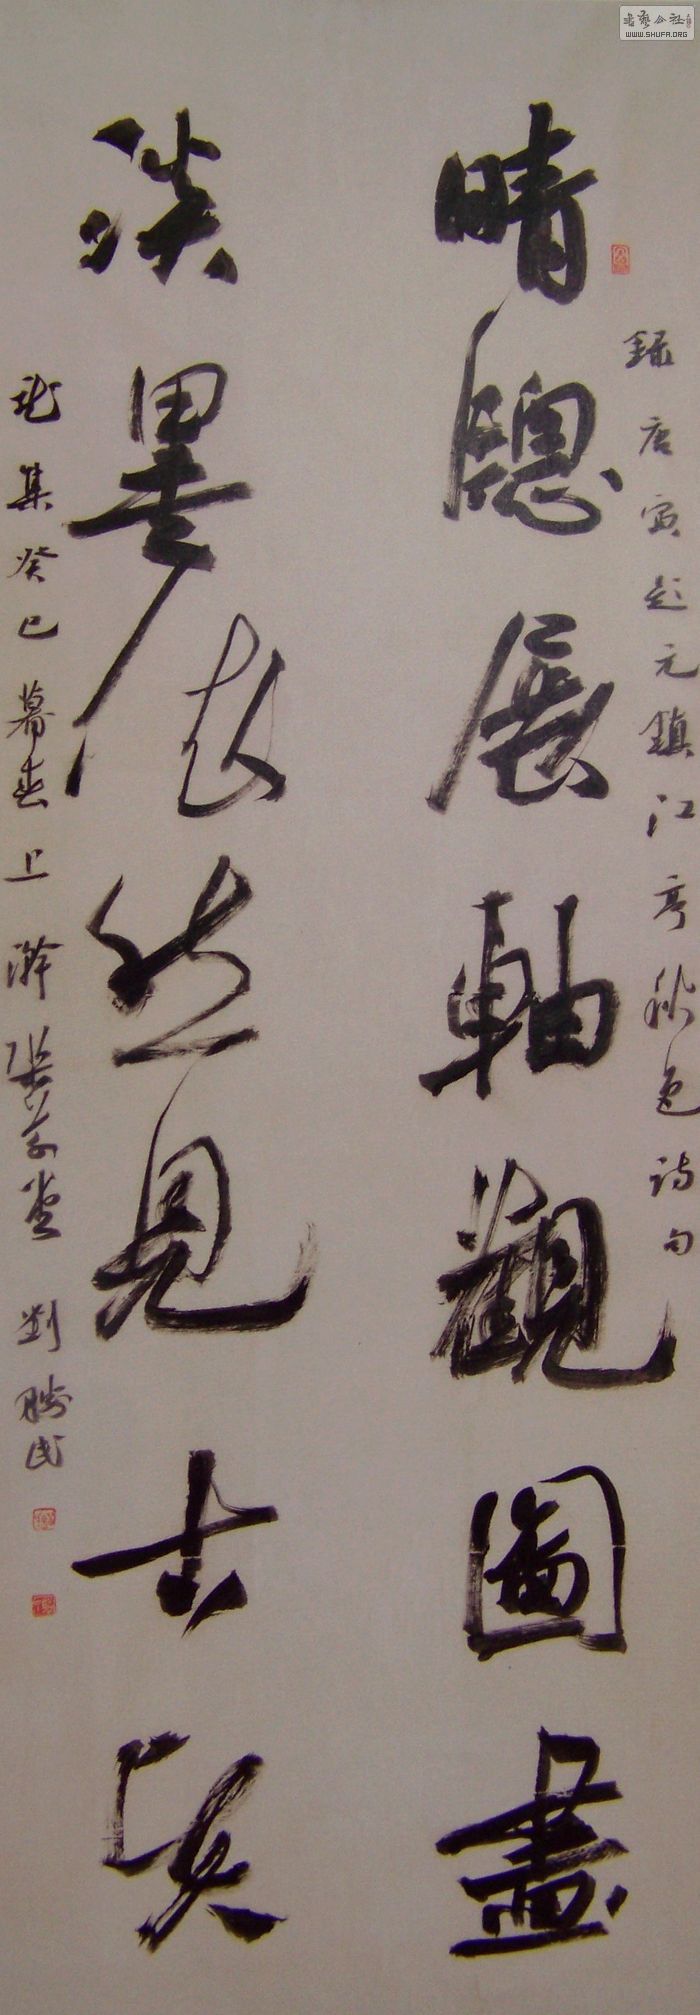 録唐寅題元鎮江亭秋色詩句
晴牕展軸觀圖畫
淡墨依然見古賢
龍集癸巳暮春上澣 劉勝民
書藝公社
WWW.SHUFA.ORG